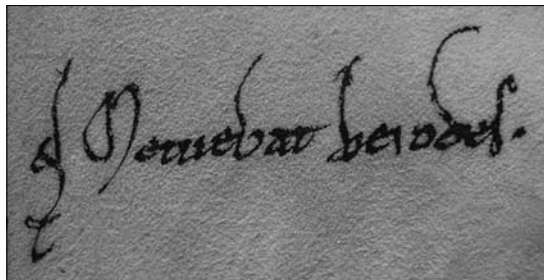 Metuebat herodes.